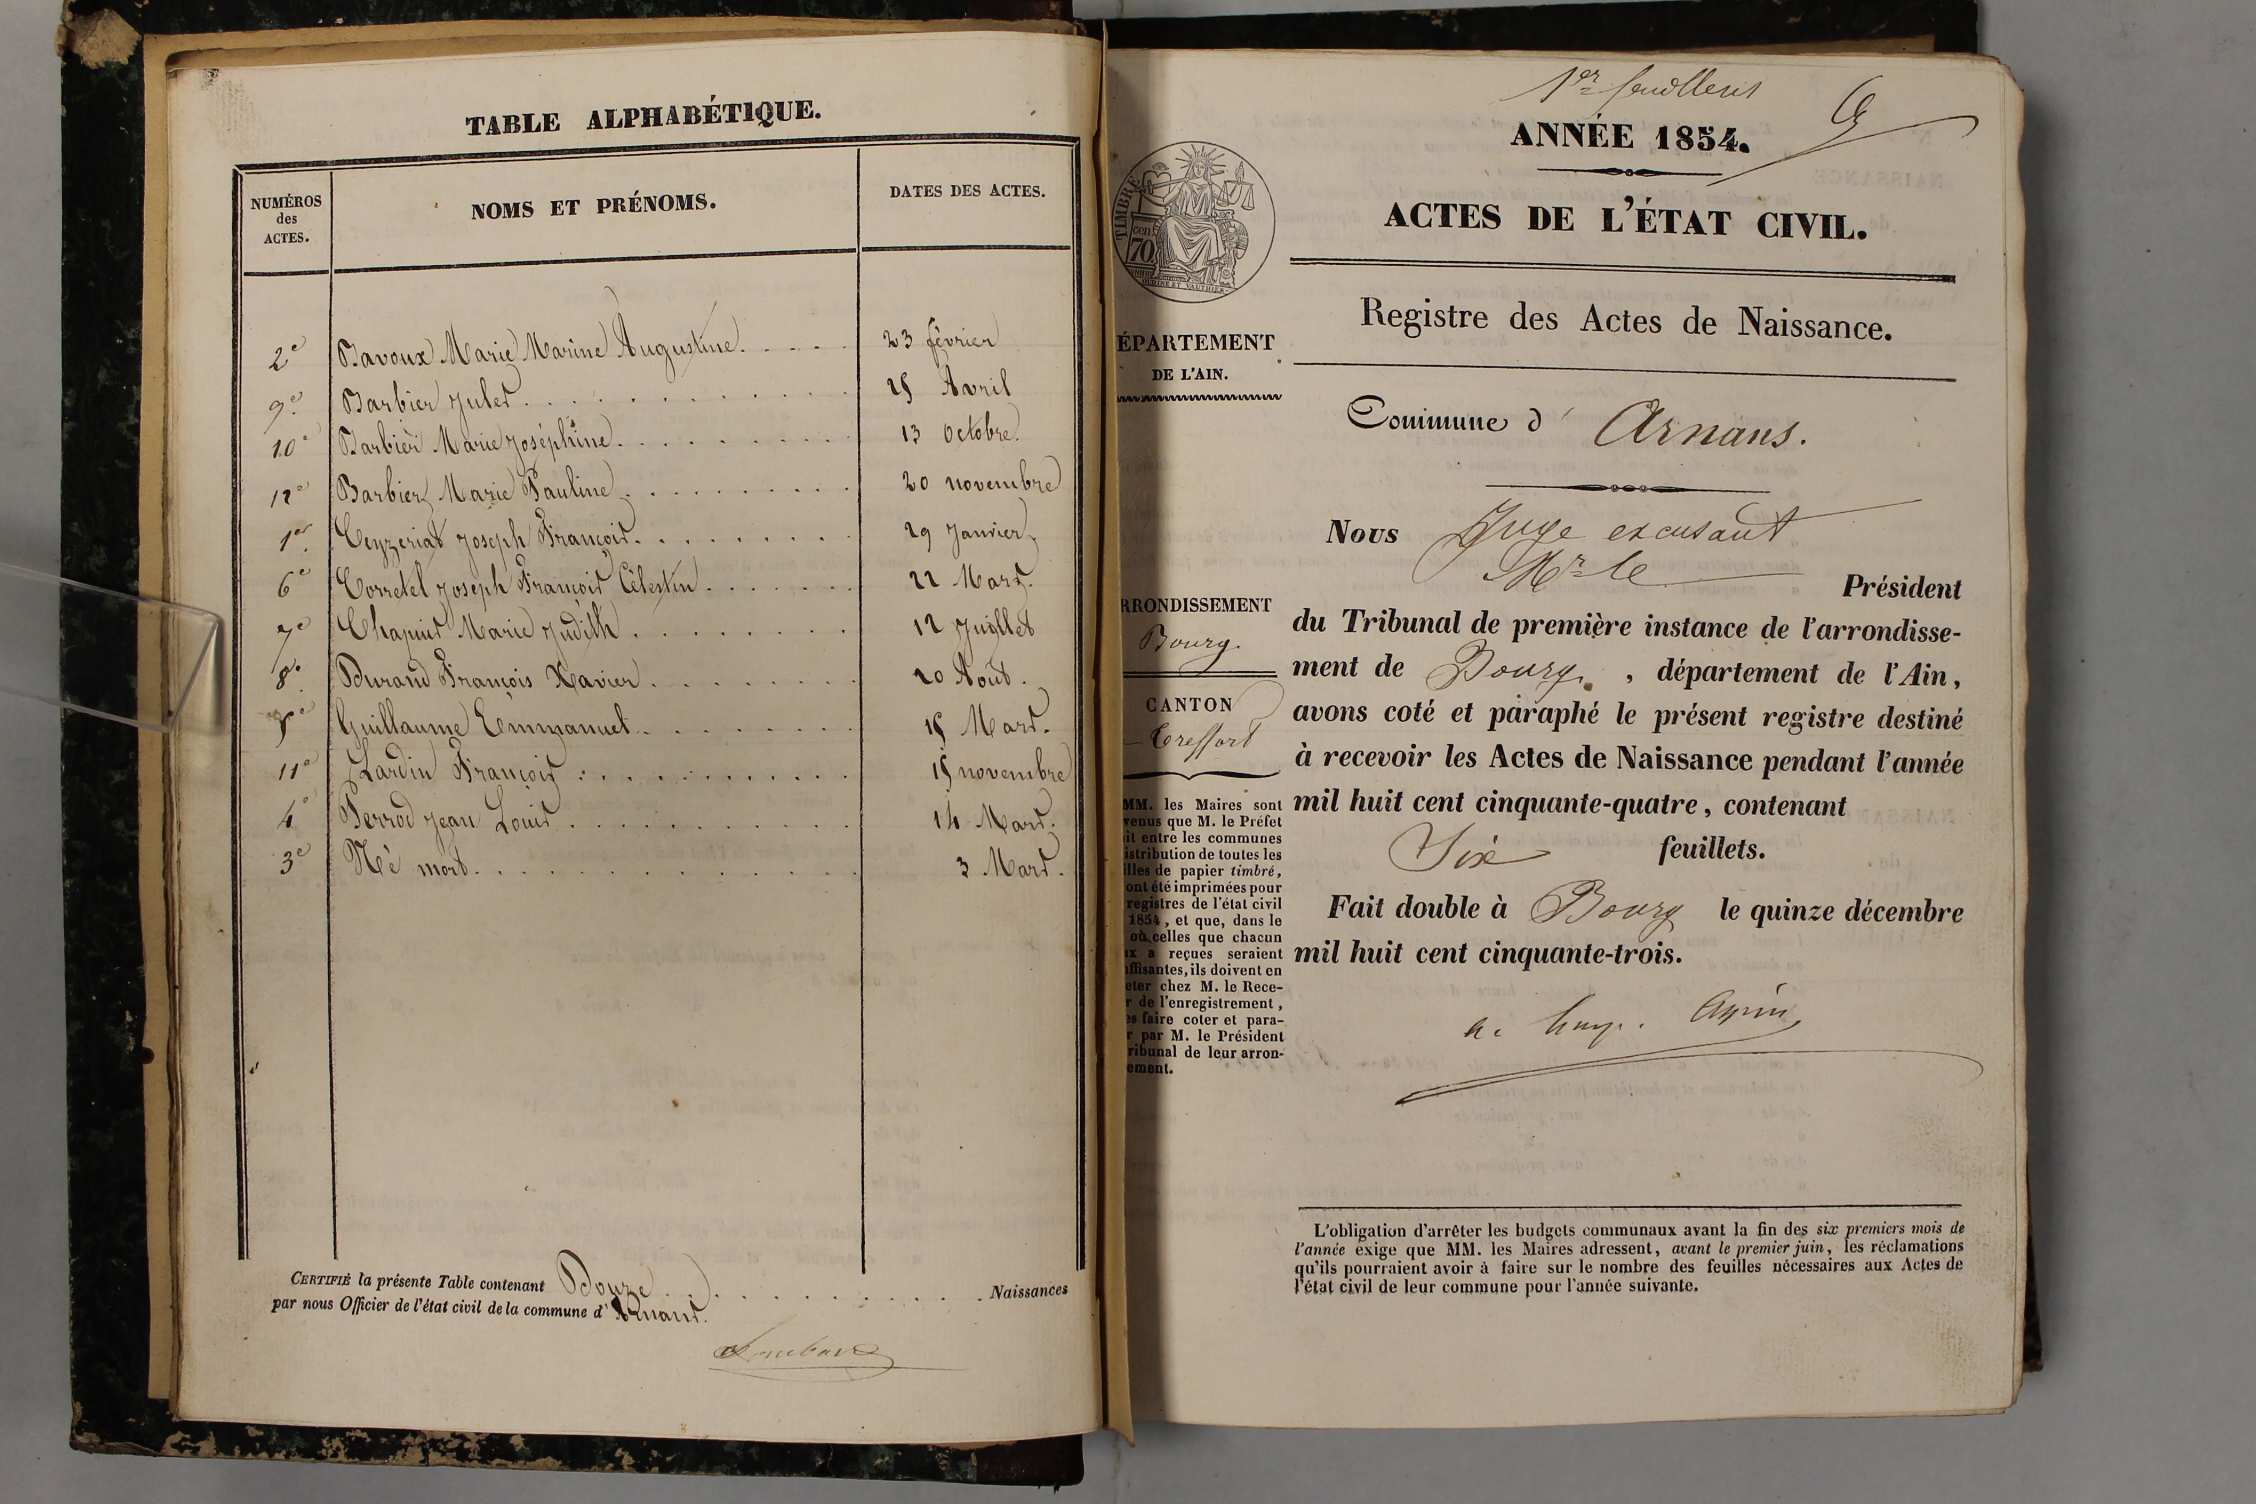 TABLE ALPHABÉTIQUE.
NUMÉROS des ACTES.
NOMS ET PRÉNOMS.
DATES DES ACTES.
2e Bavoux Marie Marine Augustine. 23 février
9e Barbier Jules. 25 Avril
10e Barbier Marie Joséphine. 13 Octobre.
12e Barbier Marie Pauline. 20 novembre
1er Ceyzeriat Joseph François. 29 Janvier.
6e Corretel Joseph François Célestin. 22 Mars.
7e Chapuis Marie Judith. 12 Juillet
8e Durand François Xavier. 20 Août.
5e Guillaume Emmanuel. 15 Mars.
11e Lardin François. 15 novembre
4e Perrod Jean Louis. 14 Mars.
3e Né mort. 3 Mars.
CERTIFIÉ la présente Table contenant Douze Naissances
par nous Officier de l'état civil de la commune d' Arnans.
1er feuillet
ANNÉE 1854.
TIMBRE
70 cen.
ACTES DE L'ÉTAT CIVIL.
Registre des Actes de Naissance.
ÉPARTEMENT
DE L'AIN.
Commune d' Arnans.
Nous Juge excusant
Mr le Président
du Tribunal de première instance de l'arrondisse-
ment de Bourg, département de l'Ain,
avons coté et paraphé le présent registre destiné
à recevoir les Actes de Naissance pendant l'année
mil huit cent cinquante-quatre, contenant
Six feuillets.
Fait double à Bourg le quinze décembre
mil huit cent cinquante-trois.
RRONDISSEMENT
Bourg.
CANTON
Treffort
MM. les Maires sont
venus que M. le Préfet
it entre les communes
istribution de toutes les
illes de papier timbré,
ont été imprimées pour
registres de l'état civil
1854, et que, dans le
où celles que chacun
ux a reçues seraient
ffisantes, ils doivent en
eter chez M. le Rece-
r de l'enregistrement,
es faire coter et para-
r par M. le Président
ribunal de leur arron-
ement.
L'obligation d'arrêter les budgets communaux avant la fin des six premiers mois de
l'année exige que MM. les Maires adressent, avant le premier juin, les réclamations
qu'ils pourraient avoir à faire sur le nombre des feuilles nécessaires aux Actes de
l'état civil de leur commune pour l'année suivante.